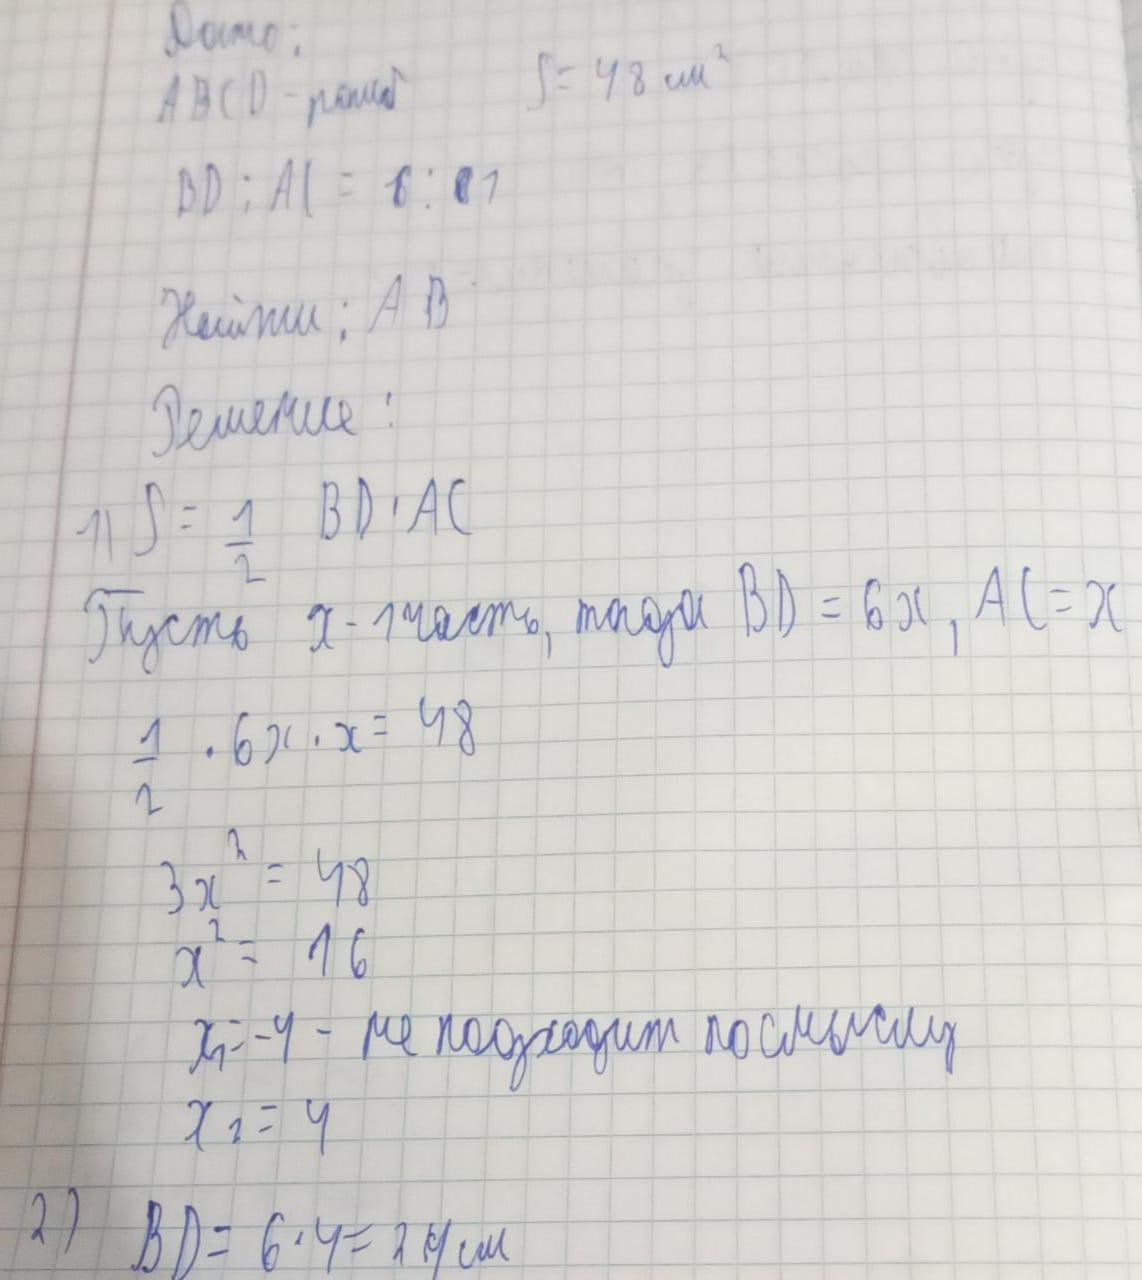 Дано:
ABCD - ромб S = 48 см²
BD : AC = 6 : 1
Найти: AB
Решение:
1) S = 1/2 BD · AC
Пусть x - 1 часть, тогда BD = 6x, AC = x
1/2 · 6x · x = 48
3x² = 48
x² = 16
x₁ = -4 - не подходит по смыслу
x₂ = 4
2) BD = 6 · 4 = 24 см